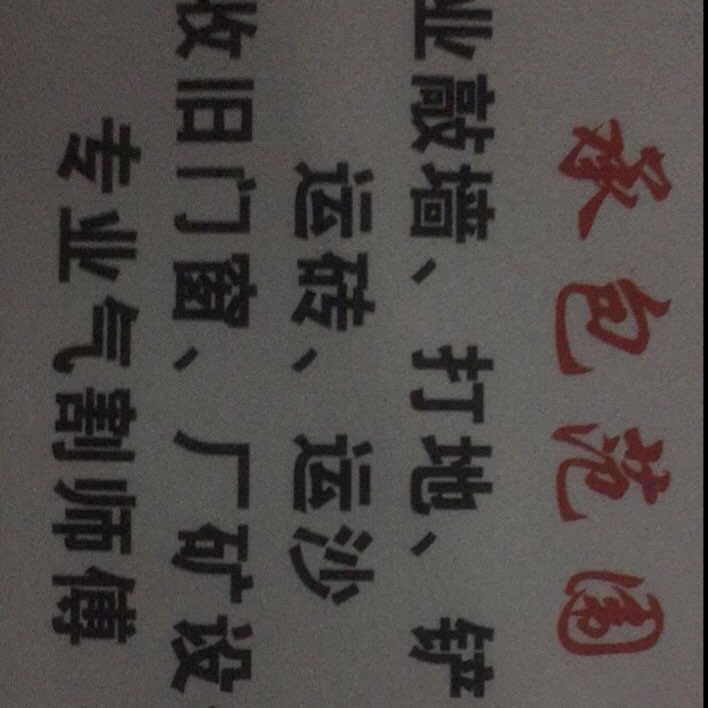 承包范围
业敲墙、打地、铲
运砖、运沙
收旧门窗、厂矿设
专业气割师傅